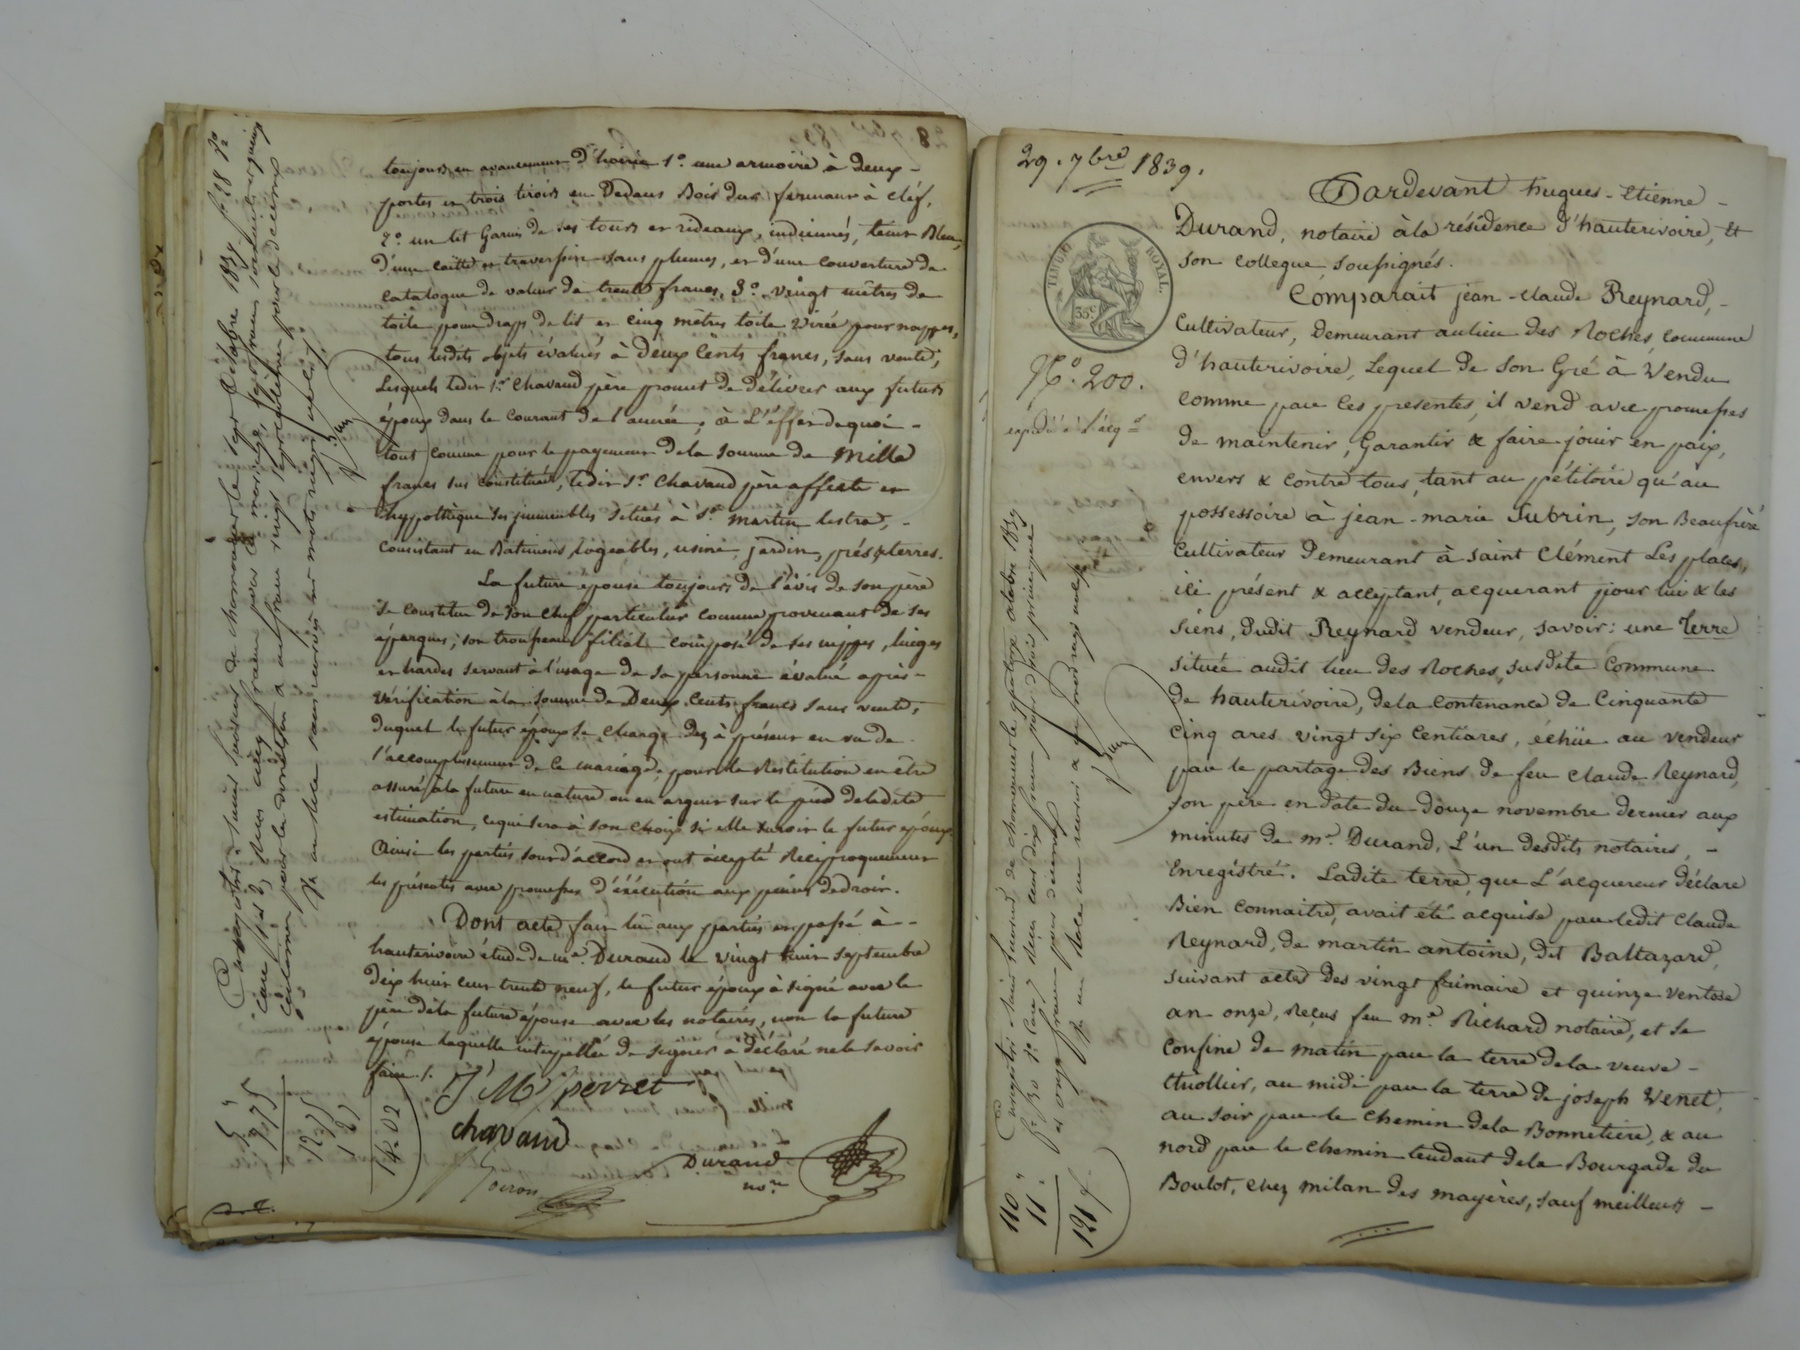 toujours en avancement d'hoirie 1.° une armoire à deux -
portes et trois tiroirs en Dedans Bois dur fermant à cléf,
2.° un lit Garni de ses tours et rideaux, indiennés, teint Bleu,
d'une coitte et traversin sans plumes, et d'une couverture de
Catalogne de valeur de trente francs, 3.° vingt mètres de
toile pour draps de lit et cinq mètres toile virée pour nappes,
tous lesdits objets évalués à deux Cents francs, sans vente,
Lesquels ledit S.r Chavand père promet de délivrer aux futurs
époux dans le courant de l'année, à L'effet de quoi -
tout comme pour le payement de la somme de Mille
francs sus constituée, ledit S.r Chavand père affecte et
hypothèque ses immeubles situés à S.t Martin lestra, -
Consistant en Batiments logeables, usine, jardin, prés & terres.
La future épouse toujours de l'avis de son père
se constitue de son chef particulier comme provenant de ses
épargnes, son trousseau filial composé de ses nippes, linges
et hardes servant à l'usage de sa personne évalué après -
vérification à la somme de Deux Cents francs sans vente,
duquel le futur époux se charge dez à présent en vu de
l'accomplissement de ce mariage, pour la Restitution en être
assuré à la future en nature ou en argent sur le pied de ladite
estimation, ce qui sera à son choix si elle survit le futur époux
Ainsi les parties sont d'accord et ont accepté Réciproquement
les présentes avec promesse d'éxécution aux peines de droit.
Dont acte fait lu aux parties et passé à -
hauterivoire étude de m.e Durand le vingt huit septembre
dix huit cent trente neuf, le futur époux à signé avec le
père de la future épouse avec les notaires, non la future
épouse laquelle interpellée de signer à déclaré ne le savoir
faire /.
J M perret
chavand
Durand
no.re
Enregistré à Saint Laurent de chamousset le sept Octobre 1839 f.° 28 R.°
cinquante centimes pour la donation
5"
7 75
12 75
1 27
14.02
29. 7bre 1839.
TIMBRE ROYAL.
35 C
N.° 200.
expédié à l'acq.r
Pardevant hugues - Etienne -
Durand, notaire à la résidence d'hauterivoire, et
son collegue, soussignés.
Comparait jean - Claude Reynard, -
Cultivateur, demeurant au lieu des Roches, commune
d'hauterivoire, Lequel de son Gré à vendu
comme par ces présentes, il vend avec promesses
de maintenir, Garantir & faire jouir en paix,
envers & contre tous, tant au pétitoire qu'au
possessoire à jean - marie Subrin, son Beaufrère
Cultivateur Demeurant à saint Clément Les places,
ici présent & acceptant, acquerant pour lui & les
siens, dudit Reynard vendeur, savoir: une Terre
située audit lieu des Roches, susdite Commune
de hauterivoire, de la Contenance de Cinquante
Cinq ares vingt six Centiares, échüe au vendeur
par le partage des Biens de feu Claude Reynard,
son père en date du douze novembre dernier aux
minutes de m.e Durand, L'un desdits notaires, -
Enregistré. Ladite terre, que L'acquereur déclare
Bien connaitre, avait été acquise par ledit Claude
Reynard, de martin antoine, dit Baltazard,
suivant actes des vingt frimaire et quinze ventose
an onze, Reçus feu m.e Richard notaire, et se
confine de matin par la terre de la veuve -
thiollier, au midi par la terre de joseph Venet,
au soir par le Chemin de la Bonnetière, & au
nord par le chemin tendant de la Bourgade du
Boulot, chez milan des mayères, sauf meilleurs -
Enregistré à Saint Laurent de chamousset le quatorze octobre 1839
et onze francs pour décime
110 "
11 "
121 f.